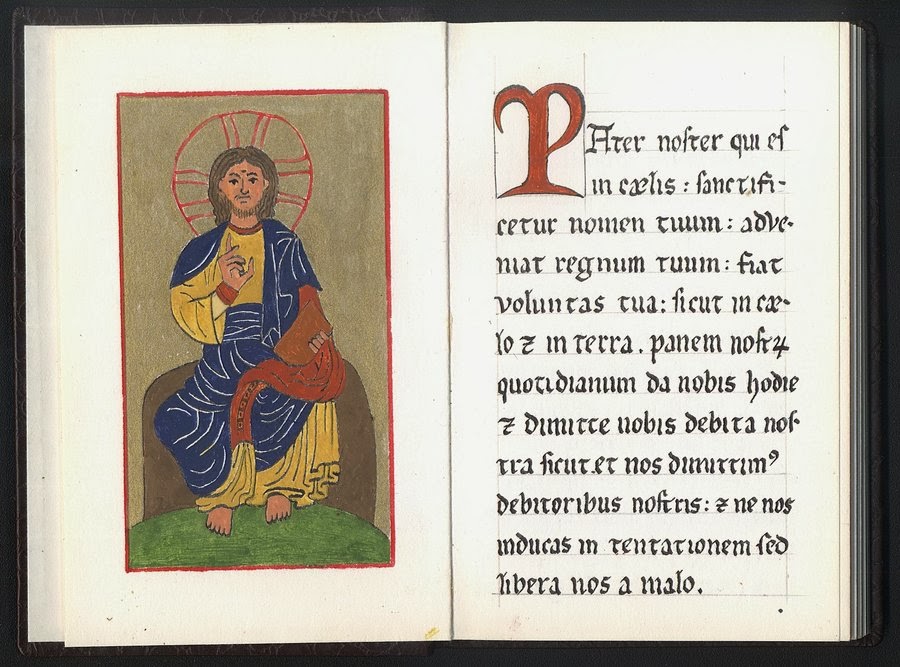 PAter noſter qui eſ
in cælis : ſanctifi-
cetur nomen tuum : adve-
niat regnum tuum : fiat
voluntas tua : ſicut in cæ-
lo ⁊ in terra . panem noſtꝝ
quotidianum da nobis hodie
⁊ dimitte nobis debita noſ-
tra ſicut.et nos dimittimꝰ
debitoribus noſtris : ⁊ ne nos
inducas in tentationem ſed
libera nos a malo .